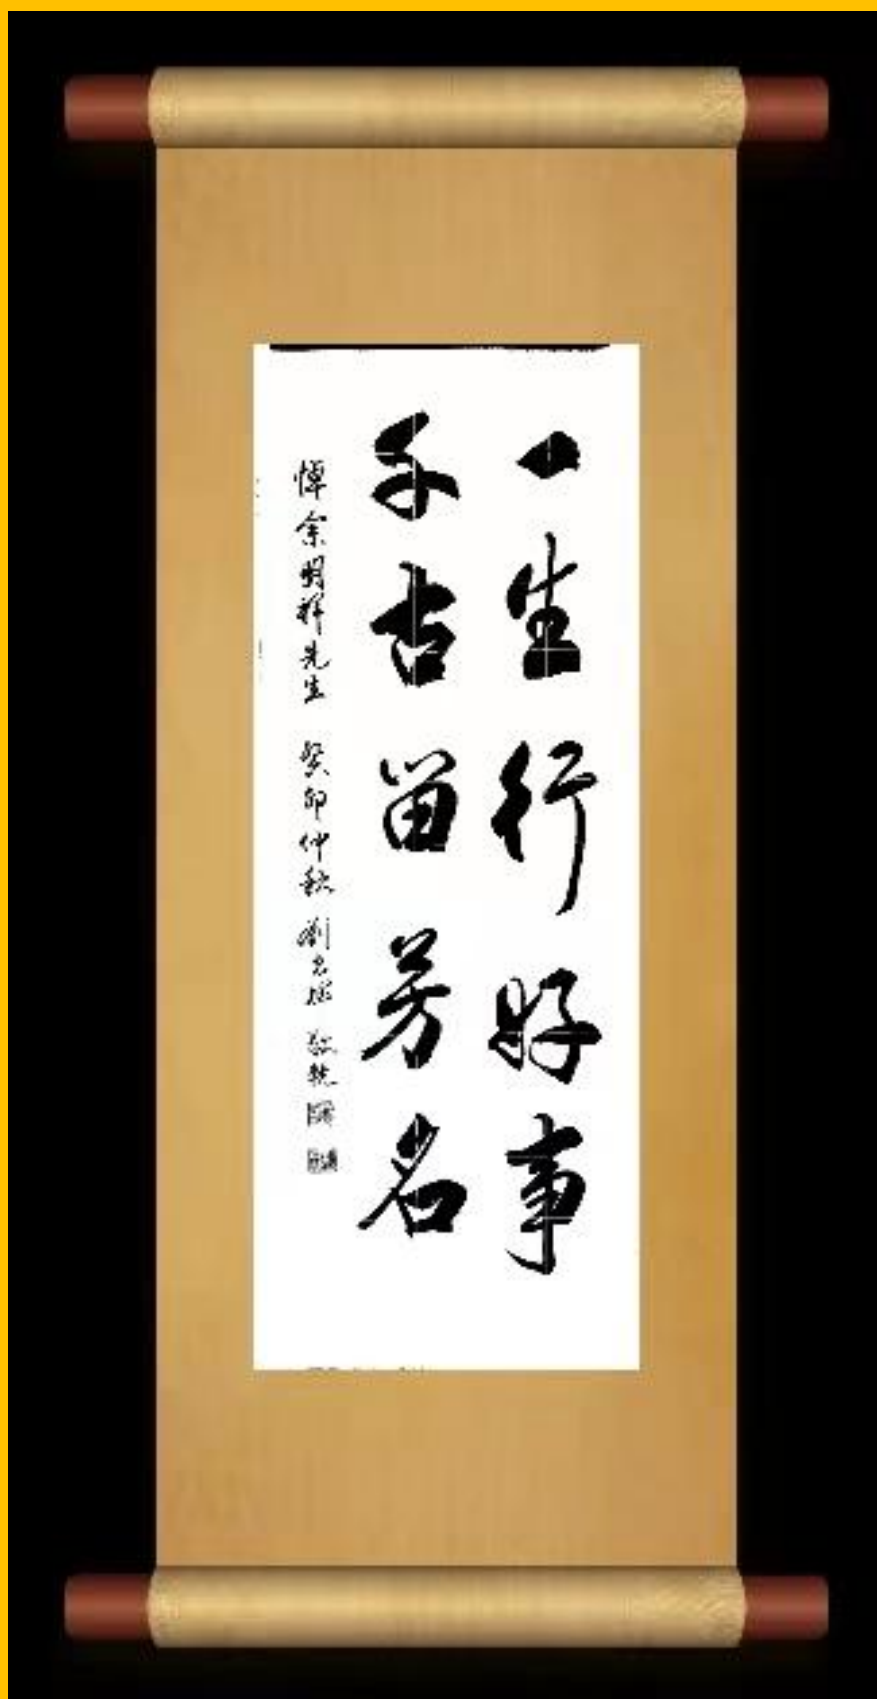 一生行好事
千古留芳名
悼余明祥先生 癸卯仲秋 劉 敬輓